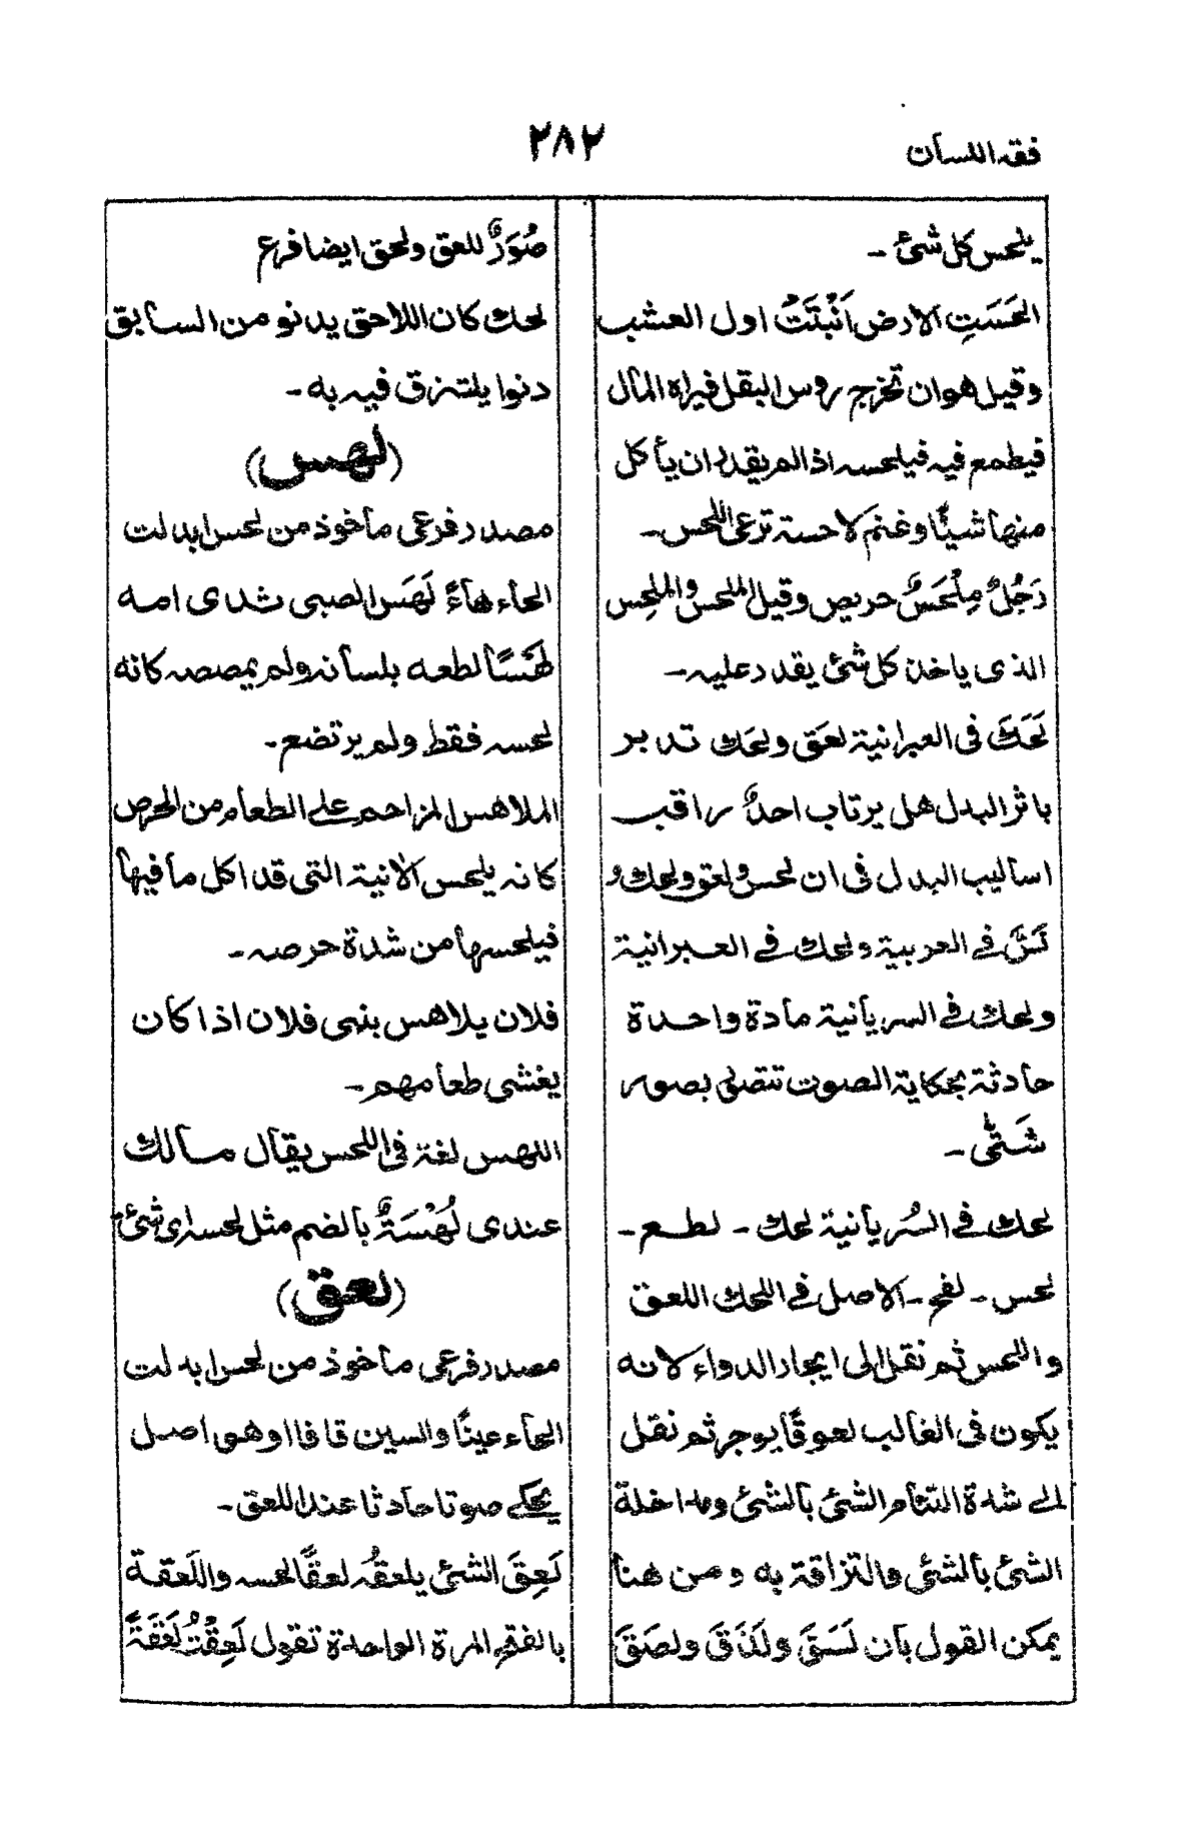 فقه اللسان
٢٨٢
يلحس كل شئ ـ
الحَسَتِ الارض اَنْبَتَتْ اول العشب
وقيل هو ان تخرج روس البقل فيراه المال
فيطمع فيه فيلحسه اذا لم يقدر ان يأكل
منها شيئًا وغنم لاحسة ترعى اللحس ـ
رَجُلٌ مِلْحَسٌ حريص وقيل الملحس والملحِس
الذى ياخذ كل شئ يقدر عليه ـ
لَحَكَ فى العبرانية لعَق ولحَك تدبر
باثر البدل هل يرتاب احدٌ راقب
اساليب البدل فى ان لحس ولعق ولحك و
لَسَّ فى العربية ولحك فى العبرانية
ولحك فى السريانية مادة واحدة
حادثة بحكاية الصوت تتصلى بصور
شَتّٰى ـ
لحك فى السُريانية لحك ـ لطع ـ
لحس ـ لفح ـ الاصل فى اللحك اللعق
واللحس ثم نقل الى ايجار الدواء لانه
يكون فى الغالب لعوقًا يوجر ثم نقل
الى شدة التئام الشئ بالشئ ومداخلة
الشئ بالشئ والتزاقة به ومن هنا
يمكن القول بان لَسَقَ ولَذَاقَ ولصَقَ
صُوَرٌ للعق ولحق ايضا فرع
لحك كان اللاحق يدنو من السابق
دنوا يلتزق فيه به ـ
(لهس)
مصدر فرعى مأخوذ من لحس ابدلت
الحاء هاءً لَهَسَ الصبى ثدى امه
لَهْسًا لطعه بلسانه ولم يمصصه كانه
لحسه فقط ولم يرتضع ـ
الملاهس المزاحم على الطعام من الحرص
كانه يلحس الانية التى قد اكل ما فيها
فيلحسها من شدة حرصه ـ
فلان يلاهس بنى فلان اذا كان
يغشى طعامهم ـ
اللهس لغة فى اللحس يقال مالك
عندى لُهْسَةٌ بالضم مثل لحسة اى شئ ـ
(لعق)
مصدر فرعى مأخوذ من لحس ابدلت
الحاء عينًا والسين قافا او هو اصل
يحكى صوتا حادثا عند اللعق ـ
لَعِقَ الشئ يلعقُه لعقًا لحسه واللَعقة
بالفتح المرة الواحدة تقول لَعِقْتُ لَعْقَةً